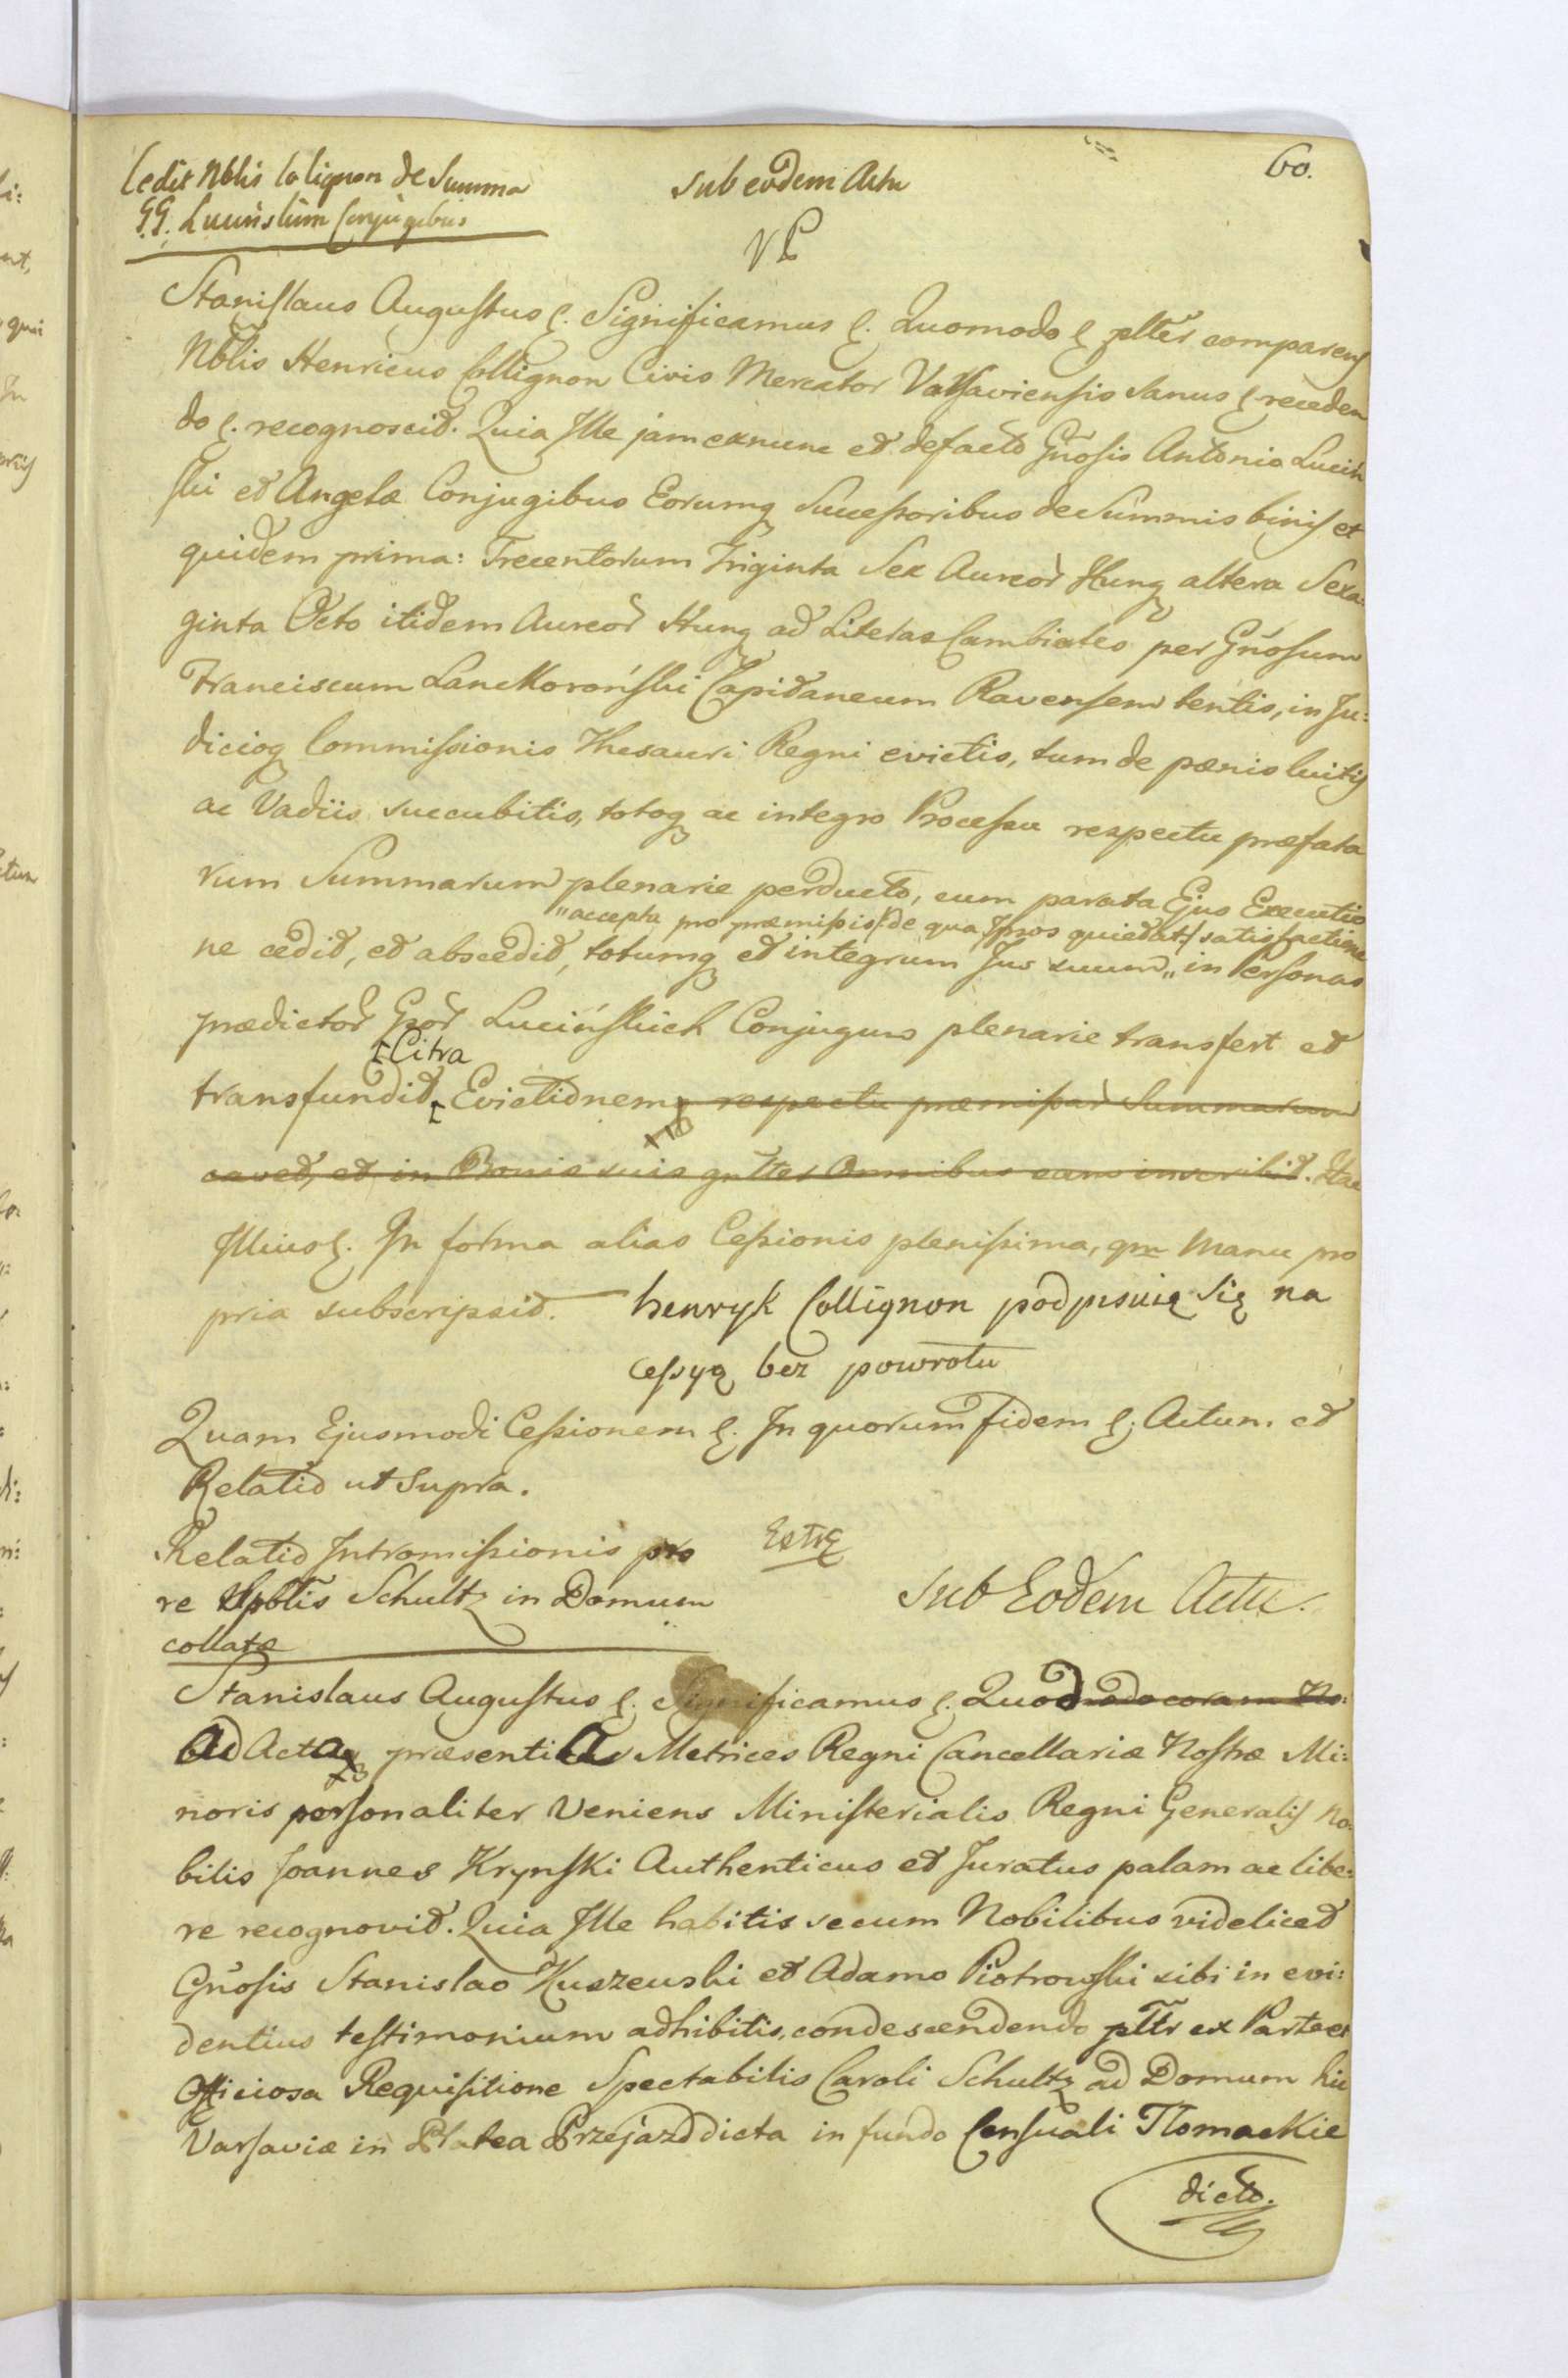 60.
Cedit Nblis Colignon de Summa
GG. Lucinskim Conjugibus
sub eodem Actu
VP
Stanislaus Augustus &. Significamus &. Quomodo & plter comparens
Nblis Henricus Collignon Civis Mercator Varsaviensis sanus & receden
do &. recognoscit. Quia Ille jam exnunc et defacto Gnosis Antonio Luciń
ski et Angelæ Conjugibus Eorumq Successoribus de Summis binis et
quidem prima: Trecentorum Triginta Sex Aureor Hung altera Sexa:
ginta Octo itidem Aureor Hung ad Literas Cambiales per Gnosum
Franciscum Lanckoroński Capitaneum Ravensem tentis, in Ju:
dicioq Commissionis Thesauri Regni evictis, tum de pœnis luitis
ac Vadiis succubitis, totoq ac integro Processu respectu præfata
rum Summarum plenarie perducto, cum parata Ejus Executio
"accepta pro præmissis /: de qua Ipsos quietat :/ satisfactione
ne cedit, et abscedit, totumq et integrum Jus suum " in Personas
prædictor Gor Lucińskich Conjugum plenarie transfert et
Citra
transfundit, Evictionemq respectu præmissar Summarum
cavet, et in Bonis suis gnlter Omnibus eam inscribit. Hac
Illius &. In forma alias Cessionis plenissima, qm Manu pro
pria subscripsit. henryk Collignon podpisuię się na
cessyą bez powrotu
Quam Ejusmodi Cessionem &. In quorum fidem &. Actum et
Relatio ut supra.
Relatio Intromissionis pro
re Spblis Schultz in Domum
collatæ
Extr
Sub Eodem Actu.
Stanislaus Augustus &. Significamus &. Quod modo coram No:
Ad Acta præsentia Metrices Regni Cancellariæ Nostræ Mi:
noris personaliter Veniens Ministerialis Regni Generalis No:
bilis Joannes Krynski Authenticus et Juratus palam ac libe:
re recognovit. Quia Ille habitis secum Nobilibus videlicet
Gnosis Stanislao Kuszewski et Adamo Piotrowski sibi in evi:
dentius testimonium adhibitis, condescendendo plter ex Parte et
Officiosa Requisitione Spectabilis Caroli Schultz ad Domum hic
Varsaviæ in Platea Przejazd dicta in fundo Censuali Tłomackie
dicto.